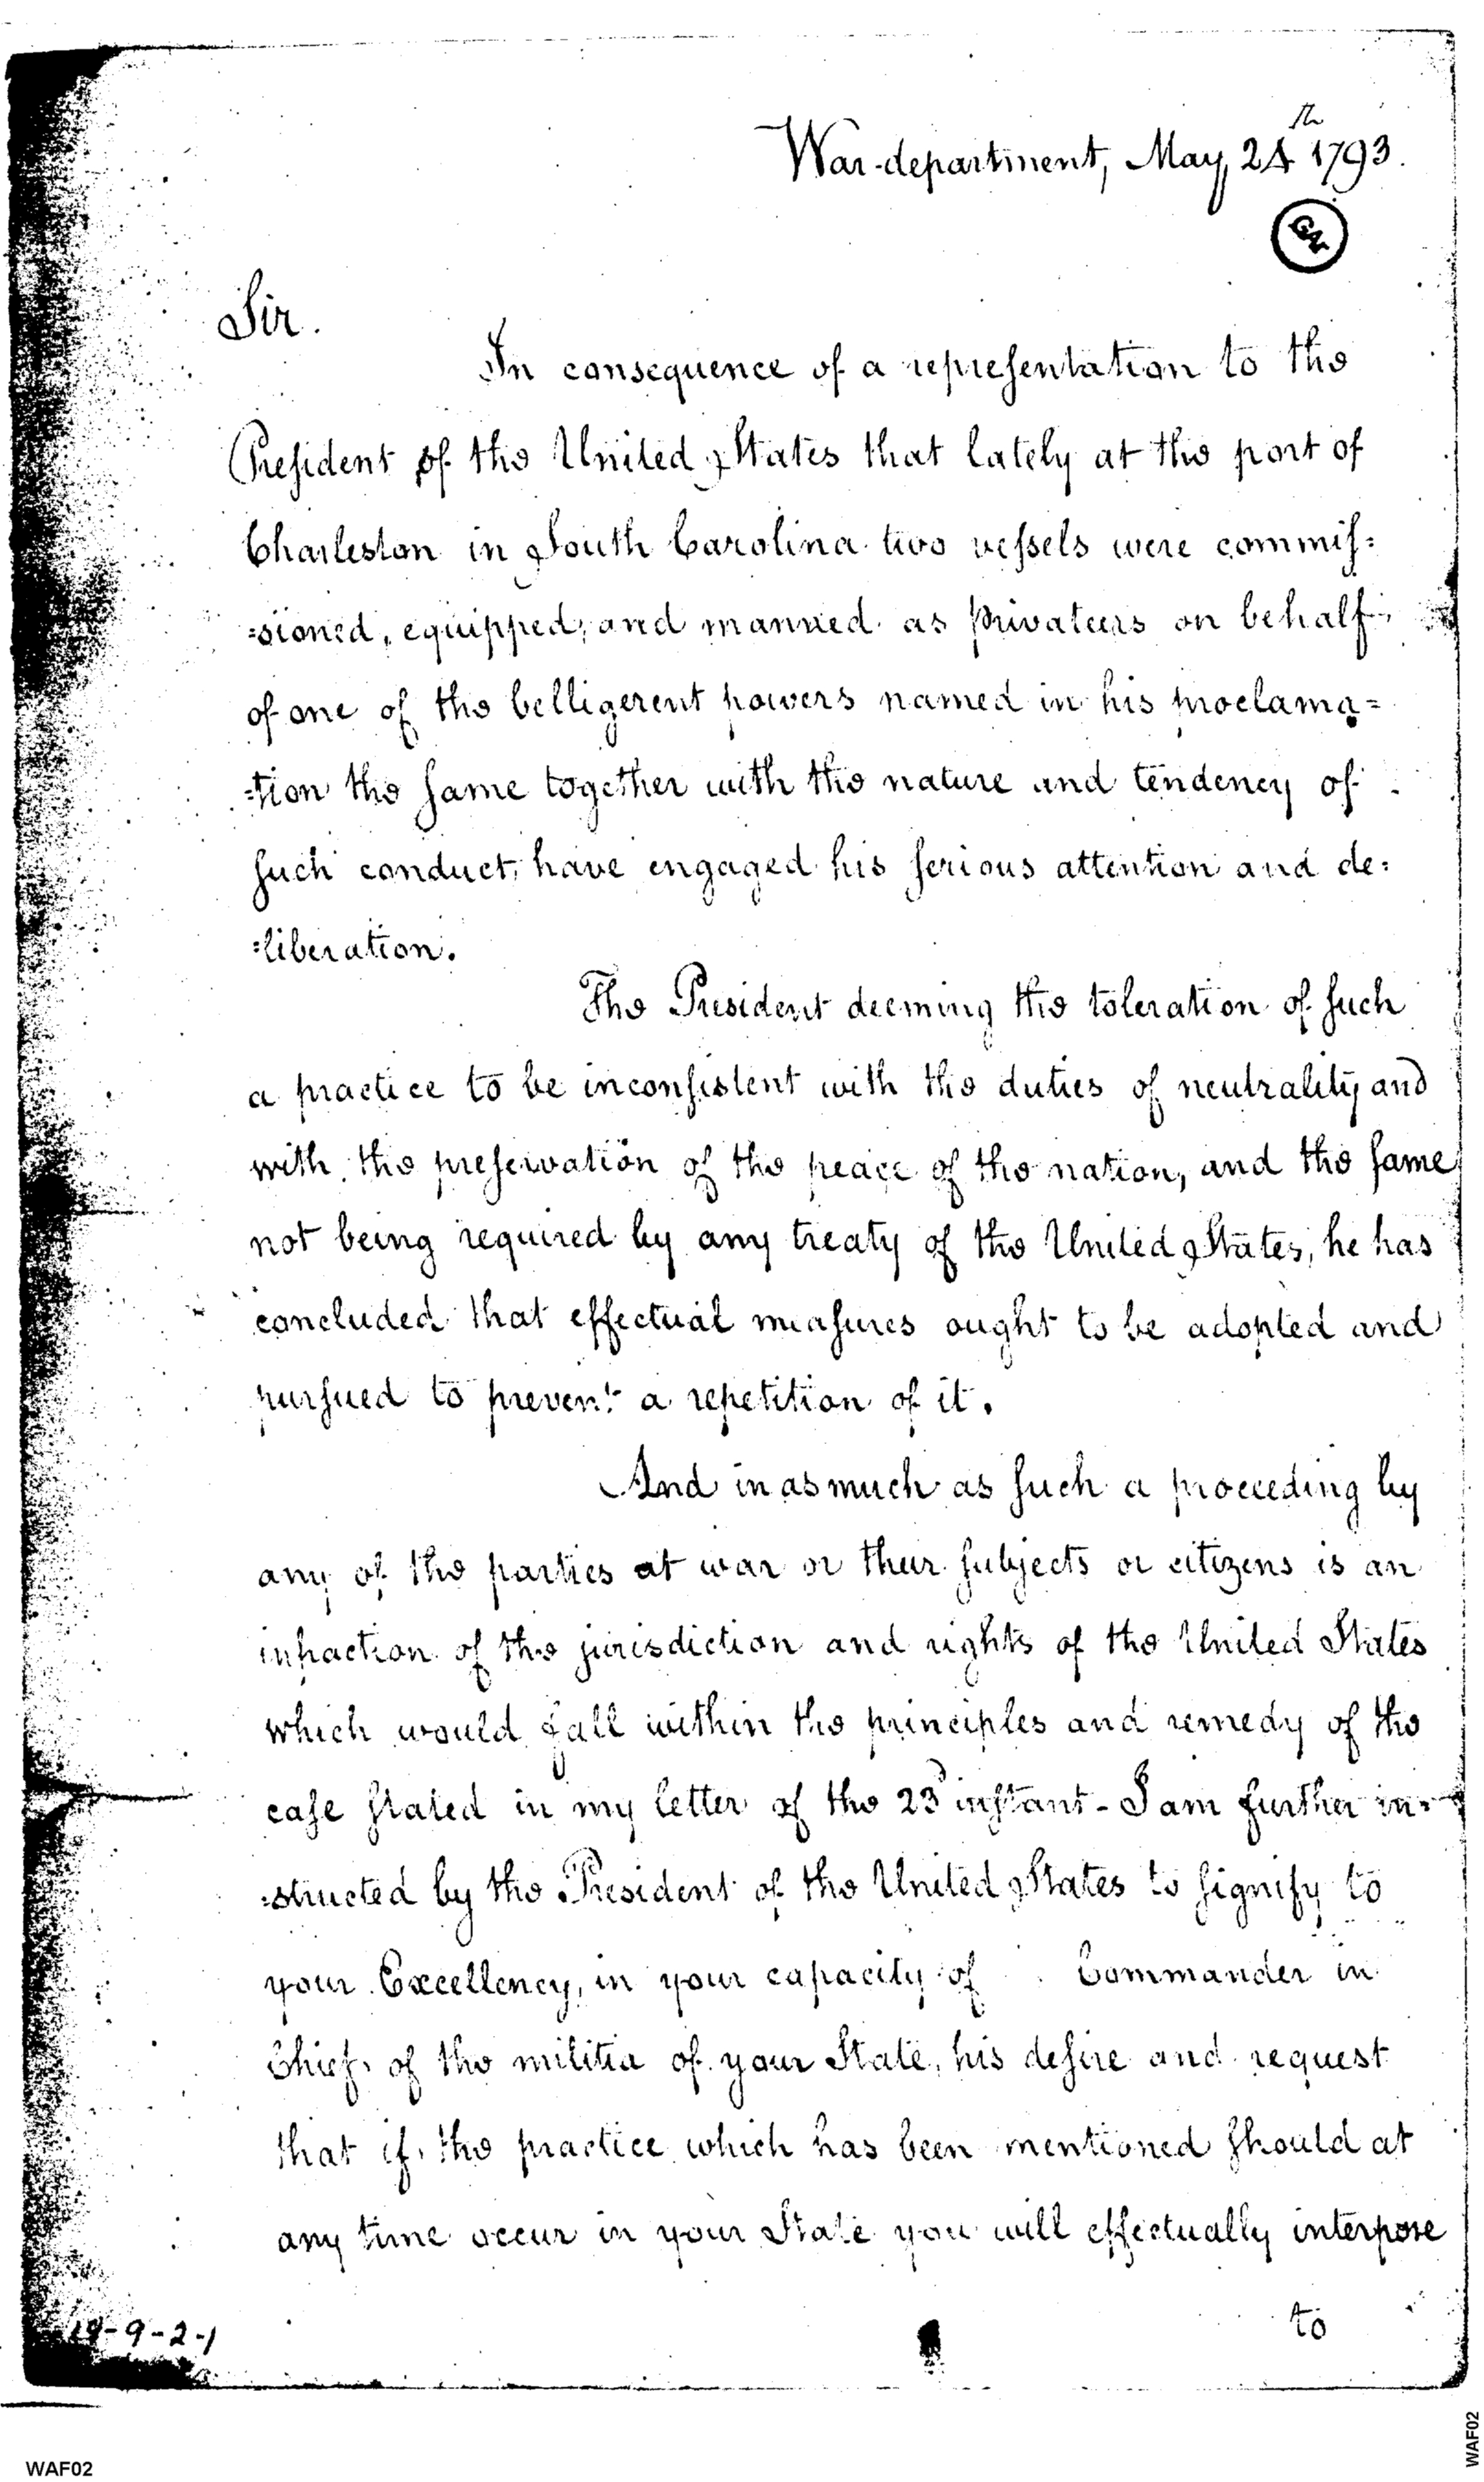 War-department, May, 24th 1793.
GW
Sir.
In consequence of a representation to the
President of the United States that lately at the port of
Charleston in South Carolina two vessels were commis:
=sioned, equipped, and manned as Privateers on behalf
of one of the belligerent powers named in his proclama=
=tion the same together with the nature and tendency of
such conduct, have engaged his serious attention and de:
=liberation.
The President deeming the toleration of such
a practice to be inconsistent with the duties of neutrality and
with the preservation of the peace of the nation, and the same
not being required by any treaty of the United States, he has
concluded that effectual measures ought to be adopted and
pursued to prevent a repetition of it.
And in as much as such a proceeding by
any of the parties at war or their subjects or citizens is an
infraction of the jurisdiction and rights of the United States
which would fall within the principles and remedy of the
case stated in my letter of the 23d instant - I am further in=
=structed by the President of the United States to signify to
your Excellency, in your capacity of Commander in
Chief of the militia of your State, his desire and request
that if the practice which has been mentioned should at
any time occur in your State you will effectually interpose
to
19-9-2-1
WAF02
WAF02